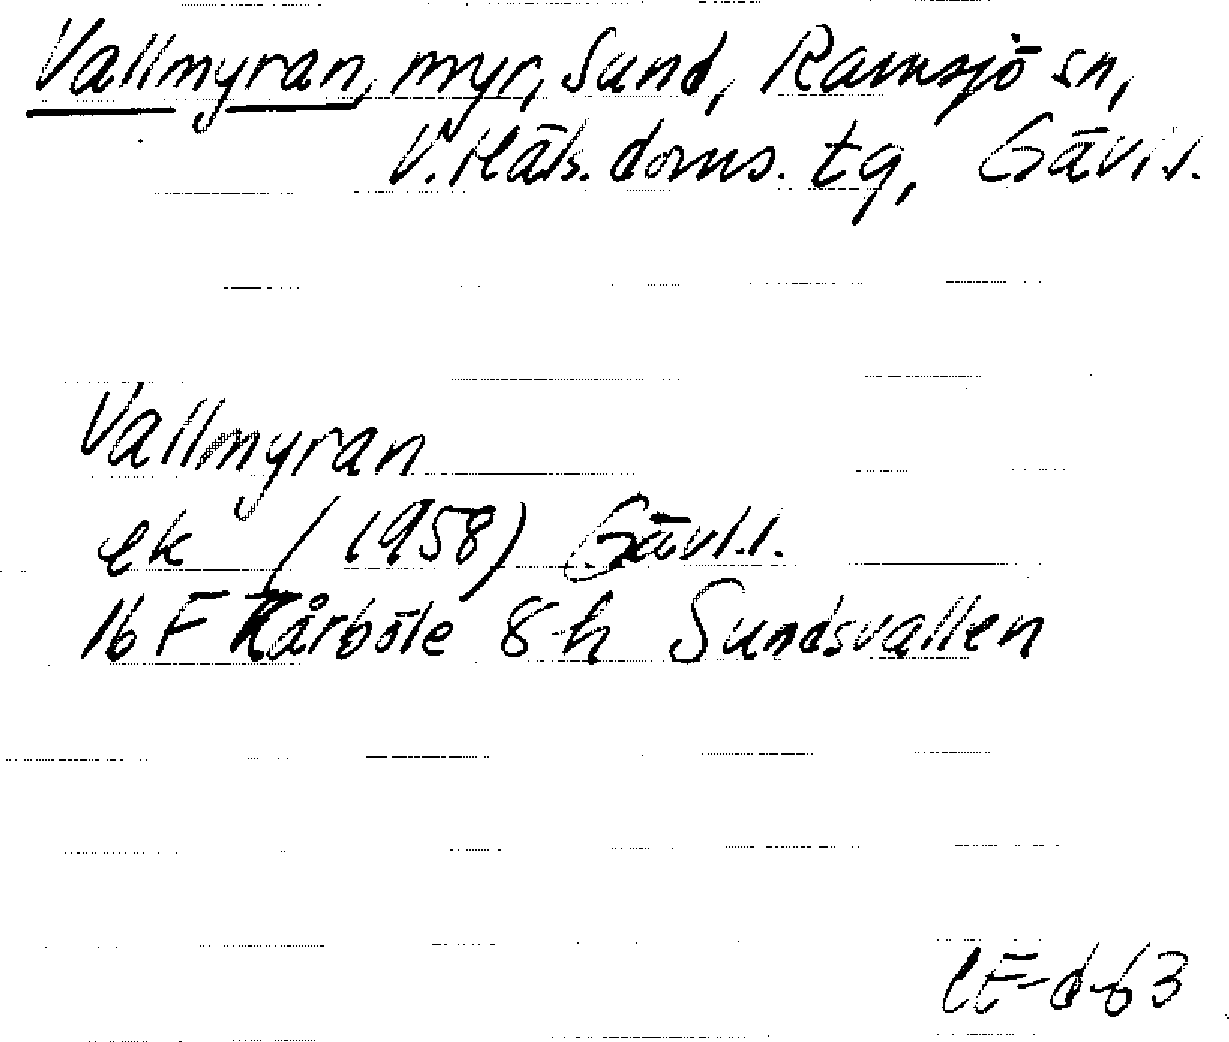 Vallmyran, myr, Sund, Ramsjö sn,
V. Häls. doms. tg, Gävl.l.
Vallmyran
ek (1958) Gävl.l.
16 F Kårböle 8 h Sundsvallen